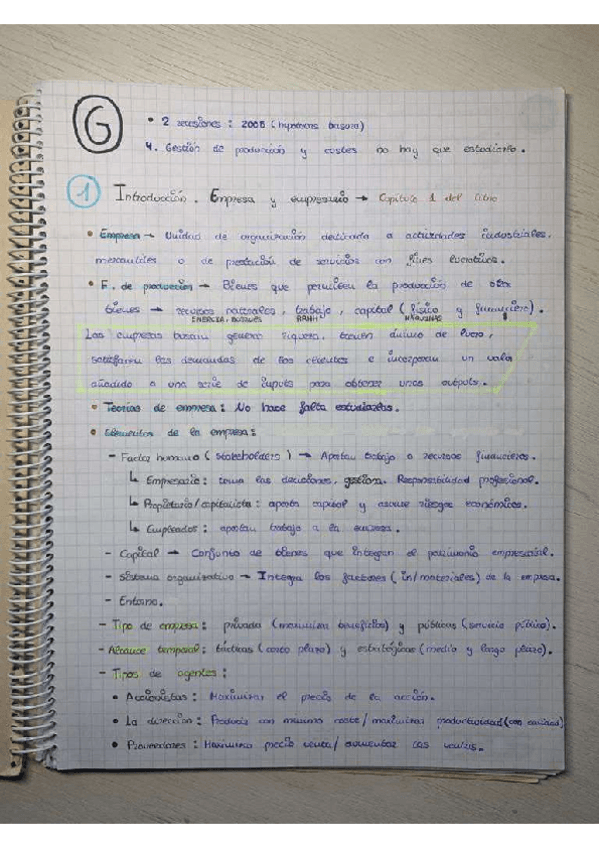 G
• 2 recesiones: 2008 (hipotecas basura)
4. Gestión de producción y costes no hay que estudiarlo.
1 Introducción. Empresa y empresario → Capítulo 1 del libro
• Empresa → Unidad de organización dedicada a actividades industriales,
mercantiles o de prestación de servicios con fines lucrativos.
• F. de producción → Bienes que permiten la producción de otros
bienes → recursos naturales, trabajo, capital (físico y financiero).
ENERGÍA, BOSQUES RRHH MÁQUINAS $
Las empresas buscan generar riqueza, tienen ánimo de lucro,
satisfacen las demandas de los clientes e incorporan un valor
añadido a una serie de inputs para obtener unos outputs.
• Teorías de empresa: No hace falta estudiarlas.
• Elementos de la empresa:
- Factor humano (stakeholders) → Aportan trabajo o recursos financieros.
↳ Empresario: toma las decisiones, gestiona. Responsabilidad profesional.
↳ Propietario/capitalista: aporta capital y asume riesgos económicos.
↳ Empleados: aportan trabajo a la empresa.
- Capital → Conjunto de bienes que integran el patrimonio empresarial.
- Sistema organizativo → Integra los factores (in/materiales) de la empresa.
- Entorno.
- Tipo de empresa: privada (maximiza beneficios) y públicas (servicio público).
- Alcance temporal: tácticas (corto plazo) y estratégicas (medio y largo plazo).
- Tipos de agentes:
• Accionistas: Maximizar el precio de la acción.
• La dirección: Producir con mínimo coste/maximizar productividad (con calidad)
• Proveedores: Maximizar precio venta/aumentar las ventas.